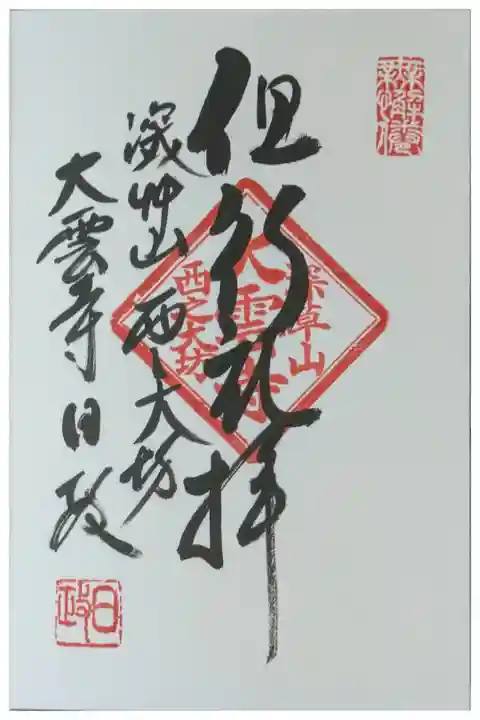 但行礼拝
深草山
大雲寺
西之大坊
深草山 西大坊
大雲寺 日政
日政